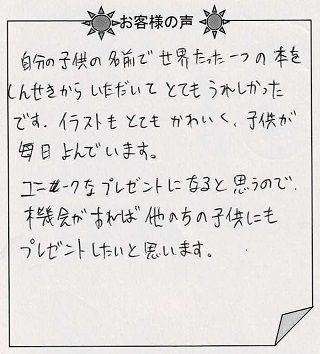 お客様の声
自分の子供の名前で世界たった一つの本を
しんせきからいただいてとてもうれしかった
です。イラストもとてもかわいく、子供が
毎日よんでいます。
ユニークなプレゼントになると思うので、
機会があれば他の方の子供にも
プレゼントしたいと思います。